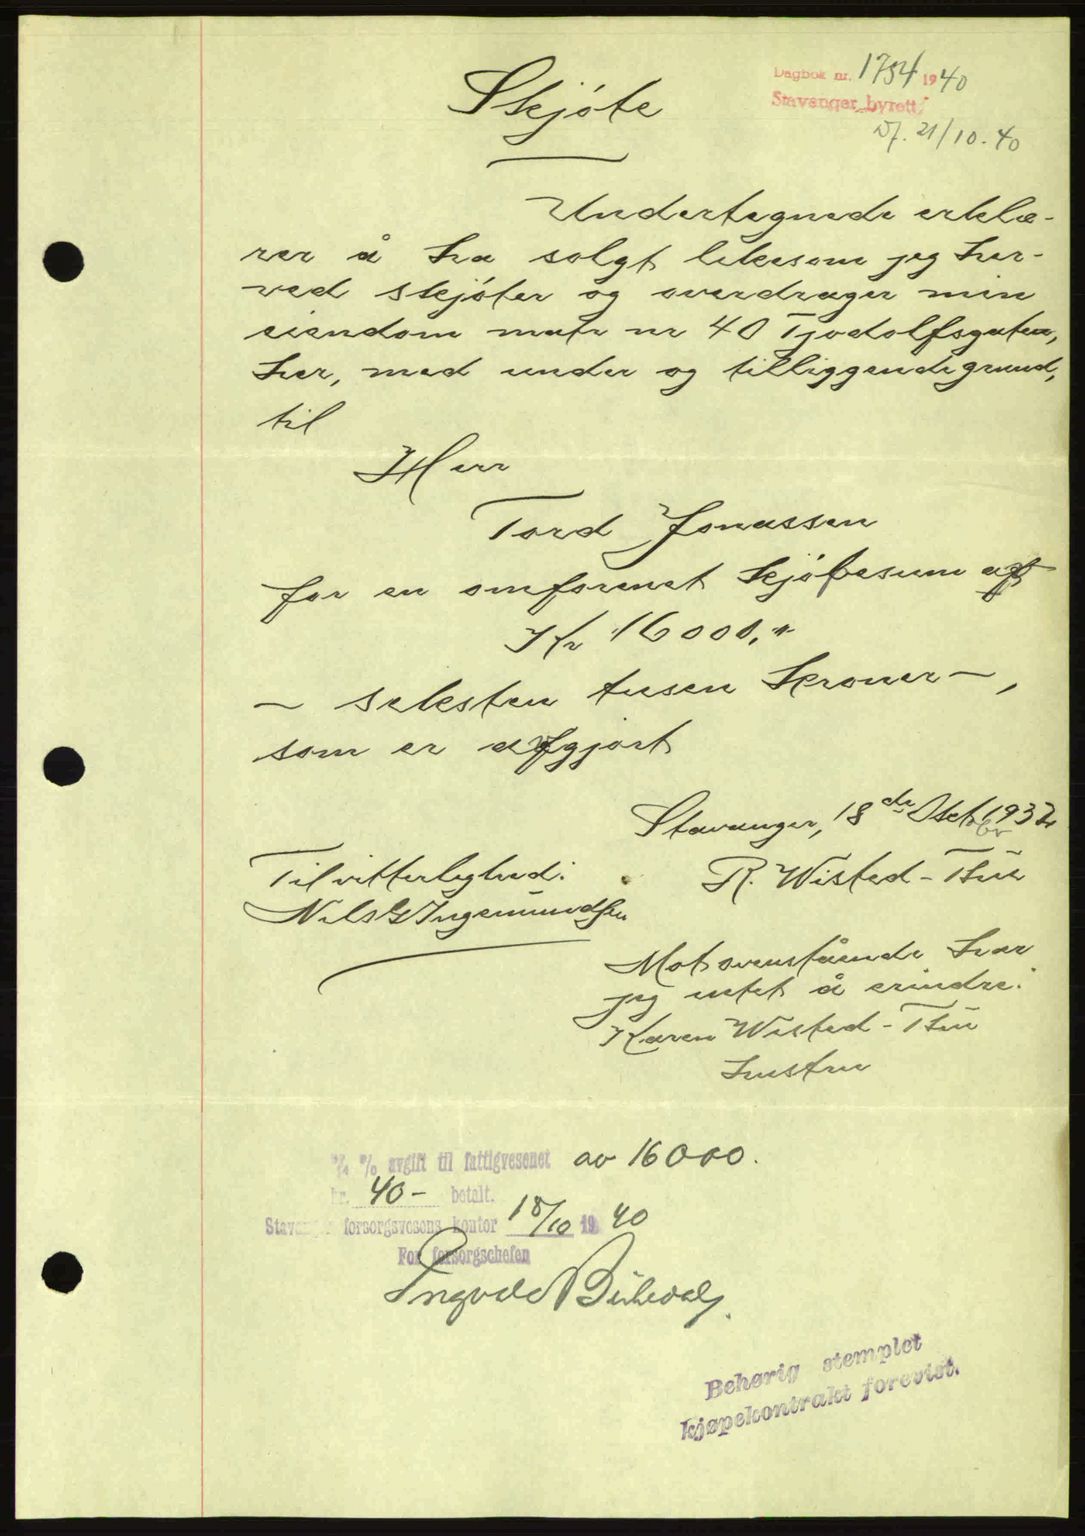 Dagbok nr. 1754 1940
Stavanger byrett
21/10. 40
Skjøte
Undertegnede erklæ-
rer å ha solgt likesom jeg her-
ved skjøter og overdrager min
eiendom matr nr 40 Tjodolfsgaten,
her, med under og tilliggende grund,
til
Herr
Tord Jonassen
for en omforenet kjøpesum af
Kr 16000,"
— seksten tusen kroner —,
som er afgjort
Stavanger, 18de Octobr 1932
Til vitterlighed:
R. Wisted - Thu
Nils G Ingemundsen
Mot ovenstående har
jeg intet å erindre.
Karen Wisted - Thu
hustru
1/4 % avgift til fattigvesenet av 16000.
kr. 40- betalt.
Stavanger forsorgsvesens kontor 18/10 1940
For forsorgschefen
Behørig stemplet
kjøpekontrakt forevist.